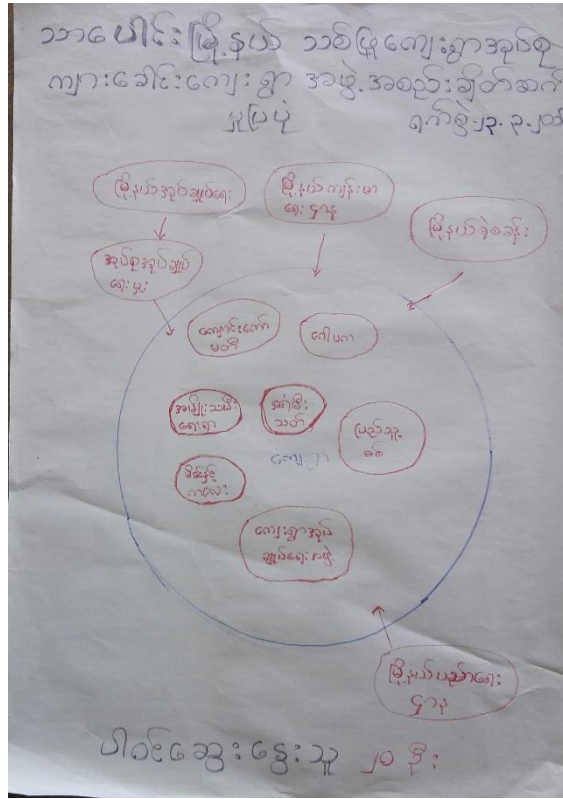 သာပေါင်းမြို့နယ် သစ်ဖြူကျေးရွာအုပ်စု
ကျားခေါင်းကျေးရွာ အဖွဲ့အစည်းချိတ်ဆက်
မှုပြပုံ ရက်စွဲ-၂၃.၃.၂၀၁
မြို့နယ်အုပ်ချုပ်ရေး
မြို့နယ်ကျန်းမာ
ရေးဌာန
မြို့နယ်ရဲစခန်း
အုပ်စုအုပ်ချုပ်
ရေးမှုး
ကျောင်းကော်
မတီ
ဂေါပက
အမျိုးသမီး
ရေးရာ
အုပ်မီး
သတ်
ပြည်သူ့
စစ်
ကျေးရွာ
မိခင်နှင့်
ကလေး
ကျေးရွာအုပ်
ချုပ်ရေးအဖွဲ့
မြို့နယ်ပညာရေး
ဌာန
ပါဝင်ဆွေးနွေးသူ ၂၀ ဦး